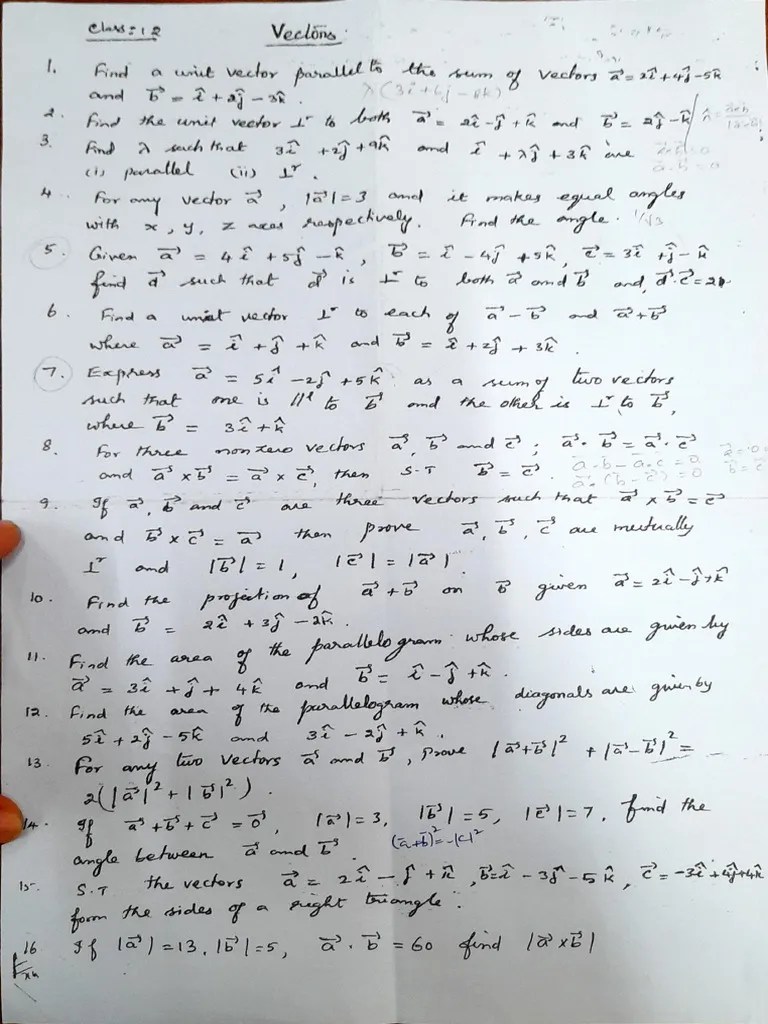 Class: 12 Vectors:
1. Find a unit vector parallel to the sum of vectors a⃗ = 2î + 4ĵ - 5k̂
and b⃗ = î + 2ĵ - 3k̂.
λ(3î + 6ĵ - 8k̂)
2. Find the unit vector ⊥r to both a⃗ = 2î - ĵ + k̂ and b⃗ = 2ĵ - k̂
3. Find λ such that 3î + 2ĵ + 9k̂ and î + λĵ + 3k̂ are
(i) parallel (ii) ⊥r.
4. For any vector a⃗, |a⃗| = 3 and it makes equal angles
with x, y, z axes respectively. Find the angle. 1/√3
5. Given a⃗ = 4î + 5ĵ - k̂, b⃗ = î - 4ĵ + 5k̂, c⃗ = 3î + ĵ - k̂
find d⃗ such that d⃗ is ⊥r to both a⃗ and b⃗ and, d⃗·c⃗ = 21
6. Find a unit vector ⊥r to each of a⃗ - b⃗ and a⃗ + b⃗
where a⃗ = î + ĵ + k̂ and b⃗ = î + 2ĵ + 3k̂.
7. Express a⃗ = 5î - 2ĵ + 5k̂ as a sum of two vectors
such that one is ||l to b⃗ and the other is ⊥r to b⃗,
where b⃗ = 3î + k̂
8. For three nonzero vectors a⃗, b⃗ and c⃗; a⃗·b⃗ = a⃗·c⃗
and a⃗ × b⃗ = a⃗ × c⃗, then S.T b⃗ = c⃗.
a·b - a·c = 0
a·(b - c) = 0
9. If a⃗, b⃗ and c⃗ are three vectors such that a⃗ × b⃗ = c⃗
and b⃗ × c⃗ = a⃗ then prove a⃗, b⃗, c⃗ are mutually
⊥r and |b⃗| = 1, |c⃗| = |a⃗|
10. Find the projection of a⃗ + b⃗ on b⃗ given a⃗ = 2î - ĵ + k̂
and b⃗ = 2î + 3ĵ - 2k̂.
11. Find the area of the parallelogram whose sides are given by
a⃗ = 3î + ĵ + 4k̂ and b⃗ = î - ĵ + k̂.
12. Find the area of the parallelogram whose diagonals are given by
5î + 2ĵ - 5k̂ and 3î - 2ĵ + k̂.
13. For any two vectors a⃗ and b⃗, prove |a⃗+b⃗|² + |a⃗-b⃗|² =
2(|a⃗|² + |b⃗|²).
14. If a⃗ + b⃗ + c⃗ = 0⃗, |a⃗| = 3, |b⃗| = 5, |c⃗| = 7, find the
angle between a⃗ and b⃗. (a+b)² = -|c|²
15. S.T the vectors a⃗ = 2î - ĵ + k̂, b⃗ = î - 3ĵ - 5k̂, c⃗ = -3î + 4ĵ + 4k̂
form the sides of a right triangle.
16 If |a⃗| = 13, |b⃗| = 5, a⃗·b⃗ = 60 find |a⃗ × b⃗|